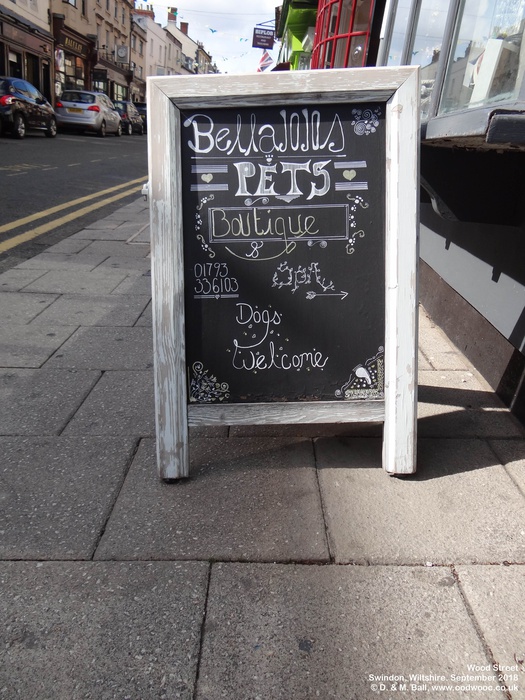 RIPLEY
BellaJoJos
PETS
Boutique
&
01793
336103
Dogs
Welcome
Wood Street
Swindon, Wiltshire. September 2018
© D. & M. Ball, www.oodwooc.co.uk